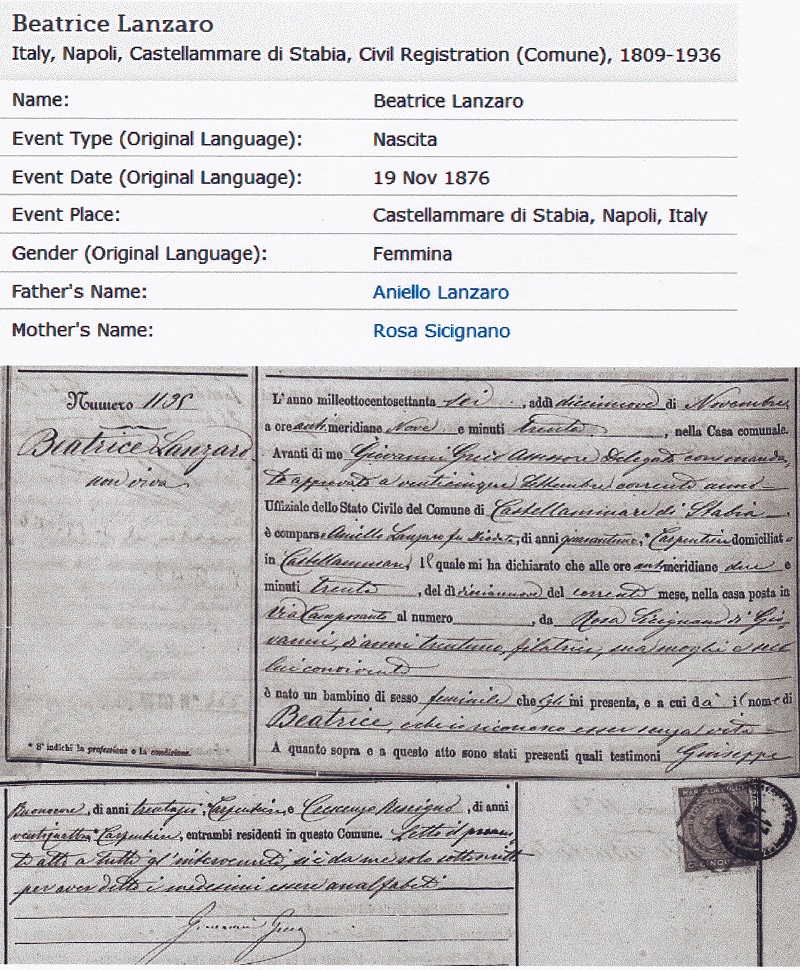 Beatrice Lanzaro
Italy, Napoli, Castellammare di Stabia, Civil Registration (Comune), 1809-1936
Name: Beatrice Lanzaro
Event Type (Original Language): Nascita
Event Date (Original Language): 19 Nov 1876
Event Place: Castellammare di Stabia, Napoli, Italy
Gender (Original Language): Femmina
Father's Name: Aniello Lanzaro
Mother's Name: Rosa Sicignano
Numero
Beatrice Lanzaro
non viva
* S'indichi la professione o la condizione.
L'anno millettocentosettanta sei, addì diciannove di Novembre
a ore anti meridiane Nove e minuti trenta, nella Casa comunale.
Avanti di me Giovanni Assessore Delegato con manda
to approvato a venticinque Settembre corrente anno
Uffiziale dello Stato Civile del Comune di Castellammare di Stabia
è comparso Aniello Lanzaro fu, di anni,* Carpentiere domiciliato
in Castellammare, Il quale mi ha dichiarato che alle ore antimeridiane due e
minuti trenta, del dì diciannove del corrente mese, nella casa posta in
Via Camposanto al numero, da Rosa Sicignano di Gio
vanni, d'anni trentuno, filatrice, sua moglie e seco
lui convivente
è nato un bambino di sesso feminile che Egli mi presenta, e a cui da il nome di
Beatrice, e che riconosco esser senza vita
A quanto sopra e a questo atto sono stati presenti quali testimoni Giuseppe
Buonocore, di anni trentasei,* Carpentiere, e Crescenzo, di anni
ventiquattro,* Carpentiere, entrambi residenti in questo Comune. Letto il presen
te atto a tutti gl'intervenuti, si è da me solo sottoscritto
per aver detto i medesimi essere analfabeti
Giovanni